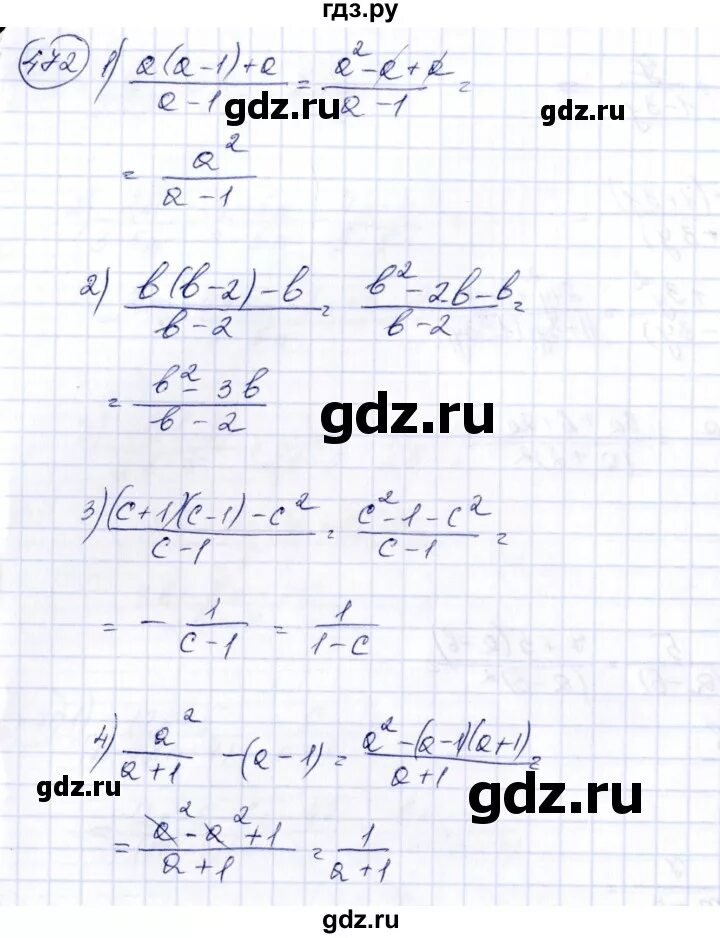 гдз.ру
472 1) (a(a-1)+a)/(a-1) = (a²-a+a)/(a-1) =
gdz.ru gdz.ru
= a²/(a-1)
2) (b(b-2)-b)/(b-2) = (b²-2b-b)/(b-2) =
= (b²-3b)/(b-2)
gdz.ru
3) ((c+1)(c-1)-c²)/(c-1) = (c²-1-c²)/(c-1) =
= - 1/(c-1) = 1/(1-c)
4) a²/(a+1) -(a-1) = (a²-(a-1)(a+1))/(a+1) =
gdz.ru gdz.ru
= (a²-a²+1)/(a+1) = 1/(a+1)
gdz.ru